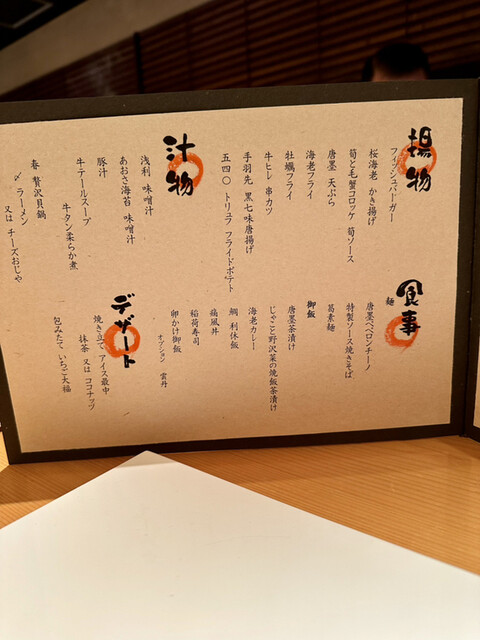 揚物
フィッシュバーガー
桜海老 かき揚げ
筍と毛蟹コロッケ 筍ソース
唐墨 天ぷら
海老フライ
牡蠣フライ
牛ヒレ 串カツ
手羽先 黒七味唐揚げ
五四〇 トリュフ フライドポテト
汁物
浅利 味噌汁
あおさ海苔 味噌汁
豚汁
牛テールスープ
牛タン柔らか煮
春 贅沢貝鍋
〆 ラーメン
又は チーズおじや
食事
麺
唐墨ペペロンチーノ
特製ソース焼きそば
葛素麺
御飯
唐墨茶漬け
じゃこと野沢菜の焼飯茶漬け
海老カレー
鯛 利休飯
稲荷寿司
卵かけ御飯
オプション 雲丹
デザート
焼き立て アイス最中
抹茶 又は ココナッツ
包みたて いちご大福